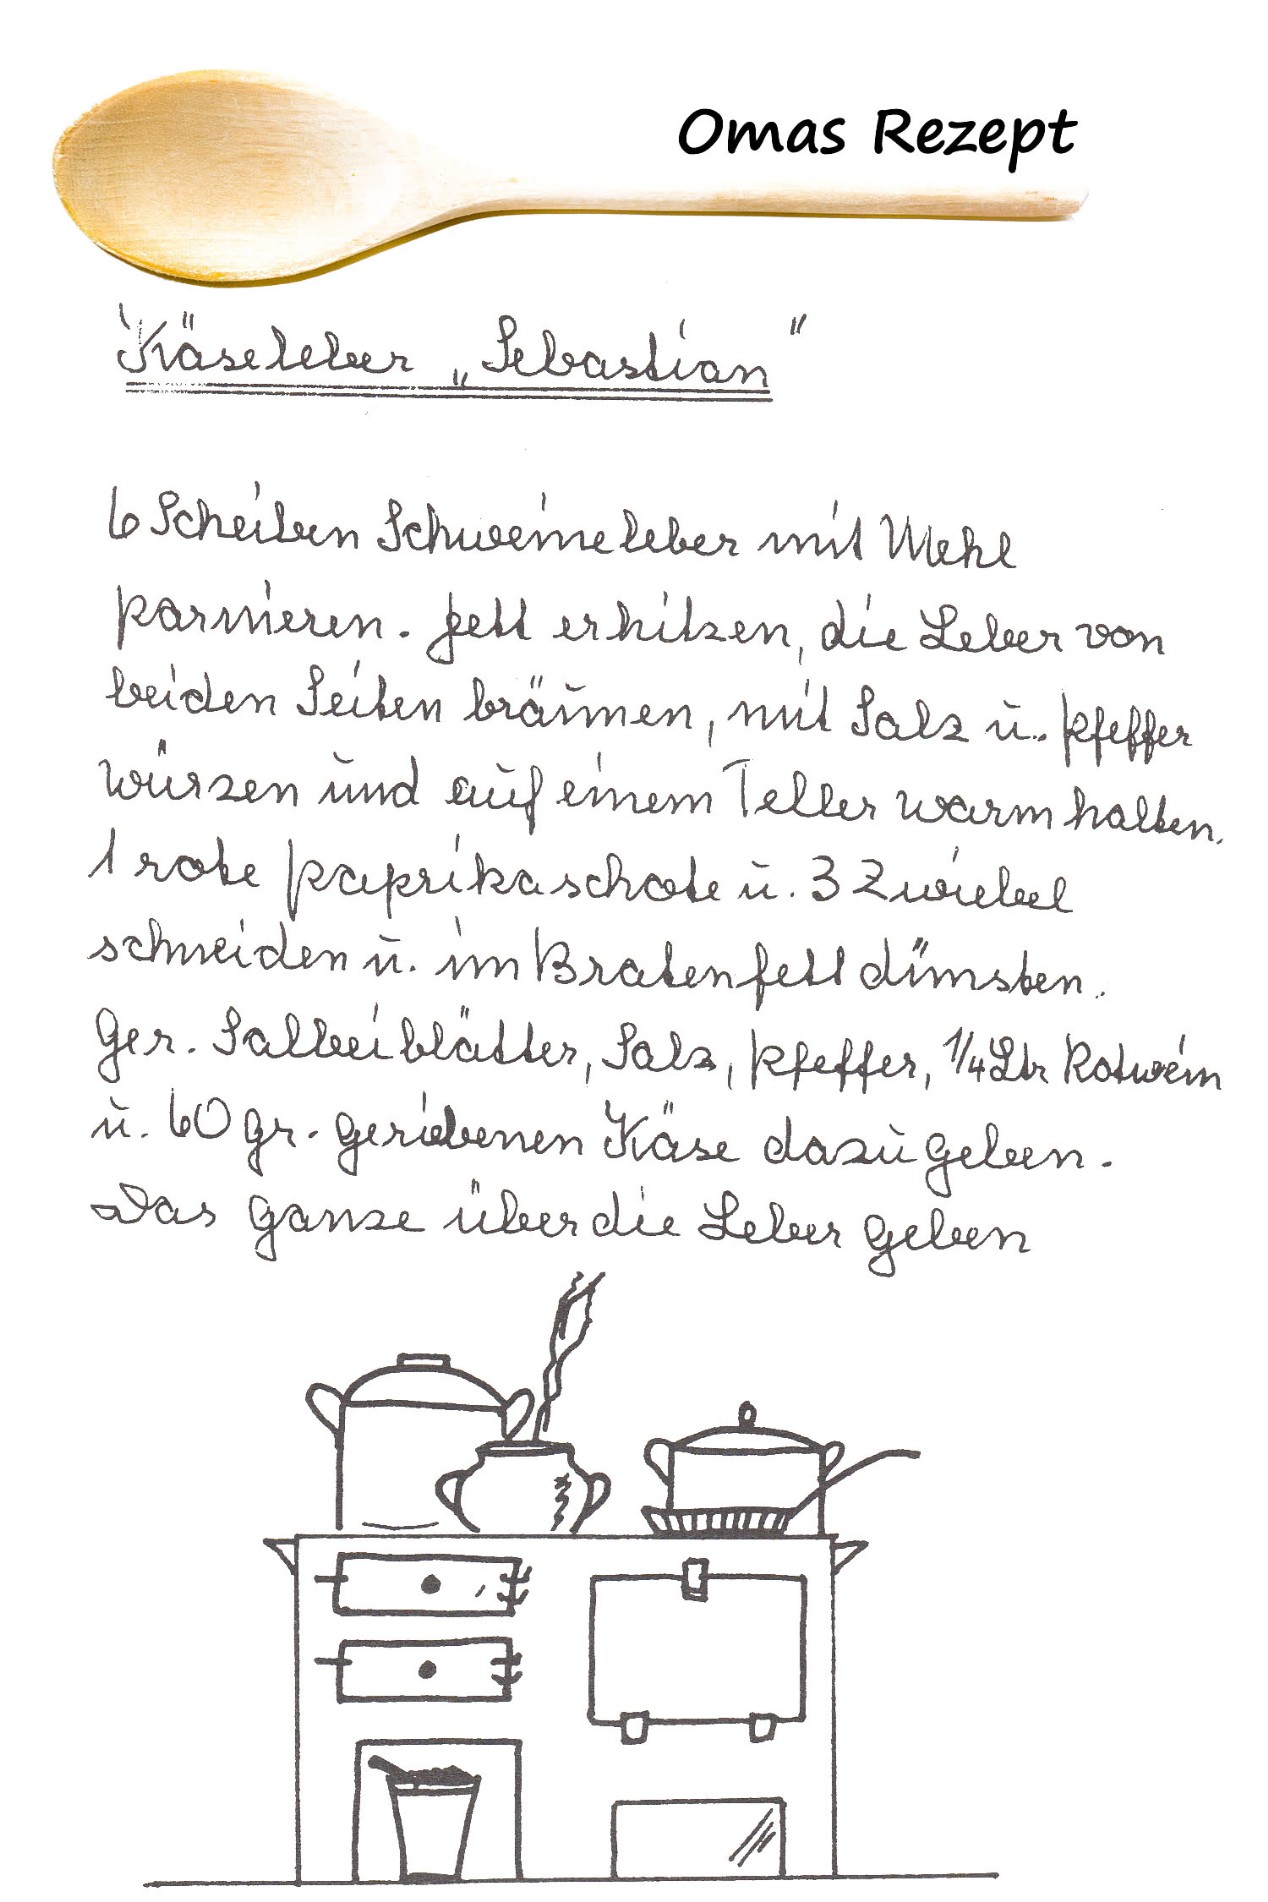 Omas Rezept
Käseleber „Sebastian"
6 Scheiben Schweineleber mit Mehl
parnieren. Fett erhitzen, die Leber von
beiden Seiten bräunen, mit Salz u. Pfeffer
würzen und auf einem Teller warm halten.
1 rote Paprikaschote u. 3 Zwiebel
schneiden u. im Bratenfett dünsten.
Ger. Salbeiblätter, Salz, Pfeffer, 1/4 Ltr Rotwein
u. 60 gr. geriebenen Käse dazugeben.
Das ganze über die Leber geben